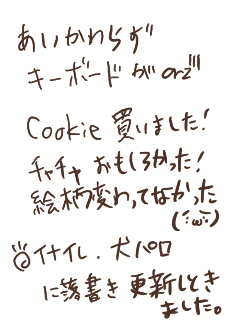 あいかわらず
キーボードがorz'''
Cookie 買いました!
チャチャ おもしろかった!
絵柄変わってなかった
(´ω`)
◎イナイレ.犬パロ
に落書き 更新しとき
ました。